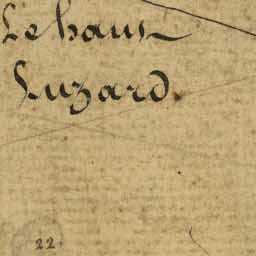 Le haut
Suzard.
22.